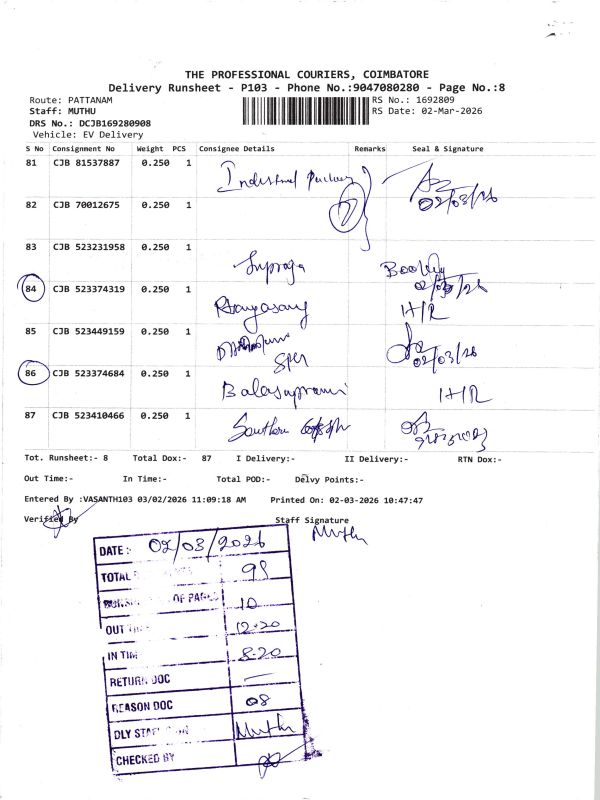 THE PROFESSIONAL COURIERS, COIMBATORE
Delivery Runsheet - P103 - Phone No.:9047080280 - Page No.:8
Route: PATTANAM RS No.: 1692809
Staff: MUTHU RS Date: 02-Mar-2026
DRS No.: DCJB169280908
Vehicle: EV Delivery
S No Consignment No Weight PCS Consignee Details Remarks Seal & Signature
81 CJB 81537887 0.250 1 Industrial
82 CJB 70012675 0.250 1 7 02/03/26
83 CJB 523231958 0.250 1 Supraja
02/03/26
84 CJB 523374319 0.250 1 H/R
85 CJB 523449159 0.250 1 02/03/26
86 CJB 523374684 0.250 1 H/R
87 CJB 523410466 0.250 1 Southern
Tot. Runsheet:- 8 Total Dox:- 87 I Delivery:- II Delivery:- RTN Dox:-
Out Time:- In Time:- Total POD:- Delvy Points:-
Entered By :VASANTH103 03/02/2026 11:09:18 AM Printed On: 02-03-2026 10:47:47
Verified By Staff Signature
Muthu
DATE :- 02/03/2026
TOTAL 98
OF PAGES 10
OUT TIME 12.20
IN TIME 8.20
RETURN DOC —
REASON DOC 08
DLY STAFF SIGN Muthu
CHECKED BY